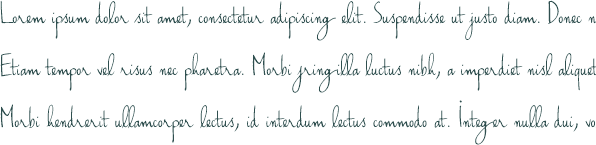 Lorem ipsum dolor sit amet, consectetur adipiscing elit. Suspendisse ut justo diam. Donec n
Etiam tempor vel risus nec pharetra. Morbi fringilla luctus nibh, a imperdiet nisl aliquet
Morbi hendrerit ullamcorper lectus, id interdum lectus commodo at. Integer nulla dui, vo